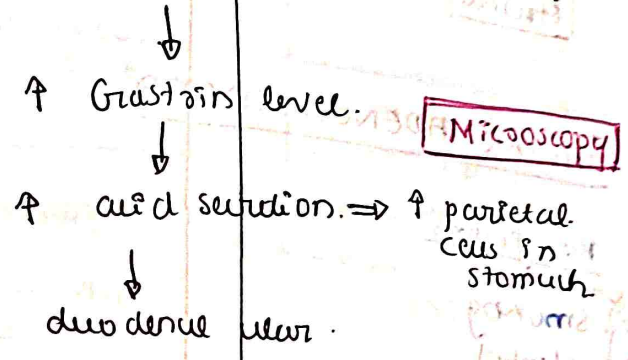 ↓
↑ Gastrin level.
Microscopy
↓
↑ acid secretion. ⇒ ↑ parietal
cells in
stomach
↓
duodenal ulcer.